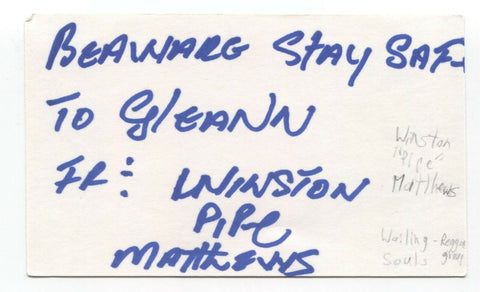 BEAWARE STAY SAF
TO GLEANN
FR: WINSTON
PIPE
MATTHEWS
Winston
"Pipe"
Matthews
Wailing - Reggae
Souls group